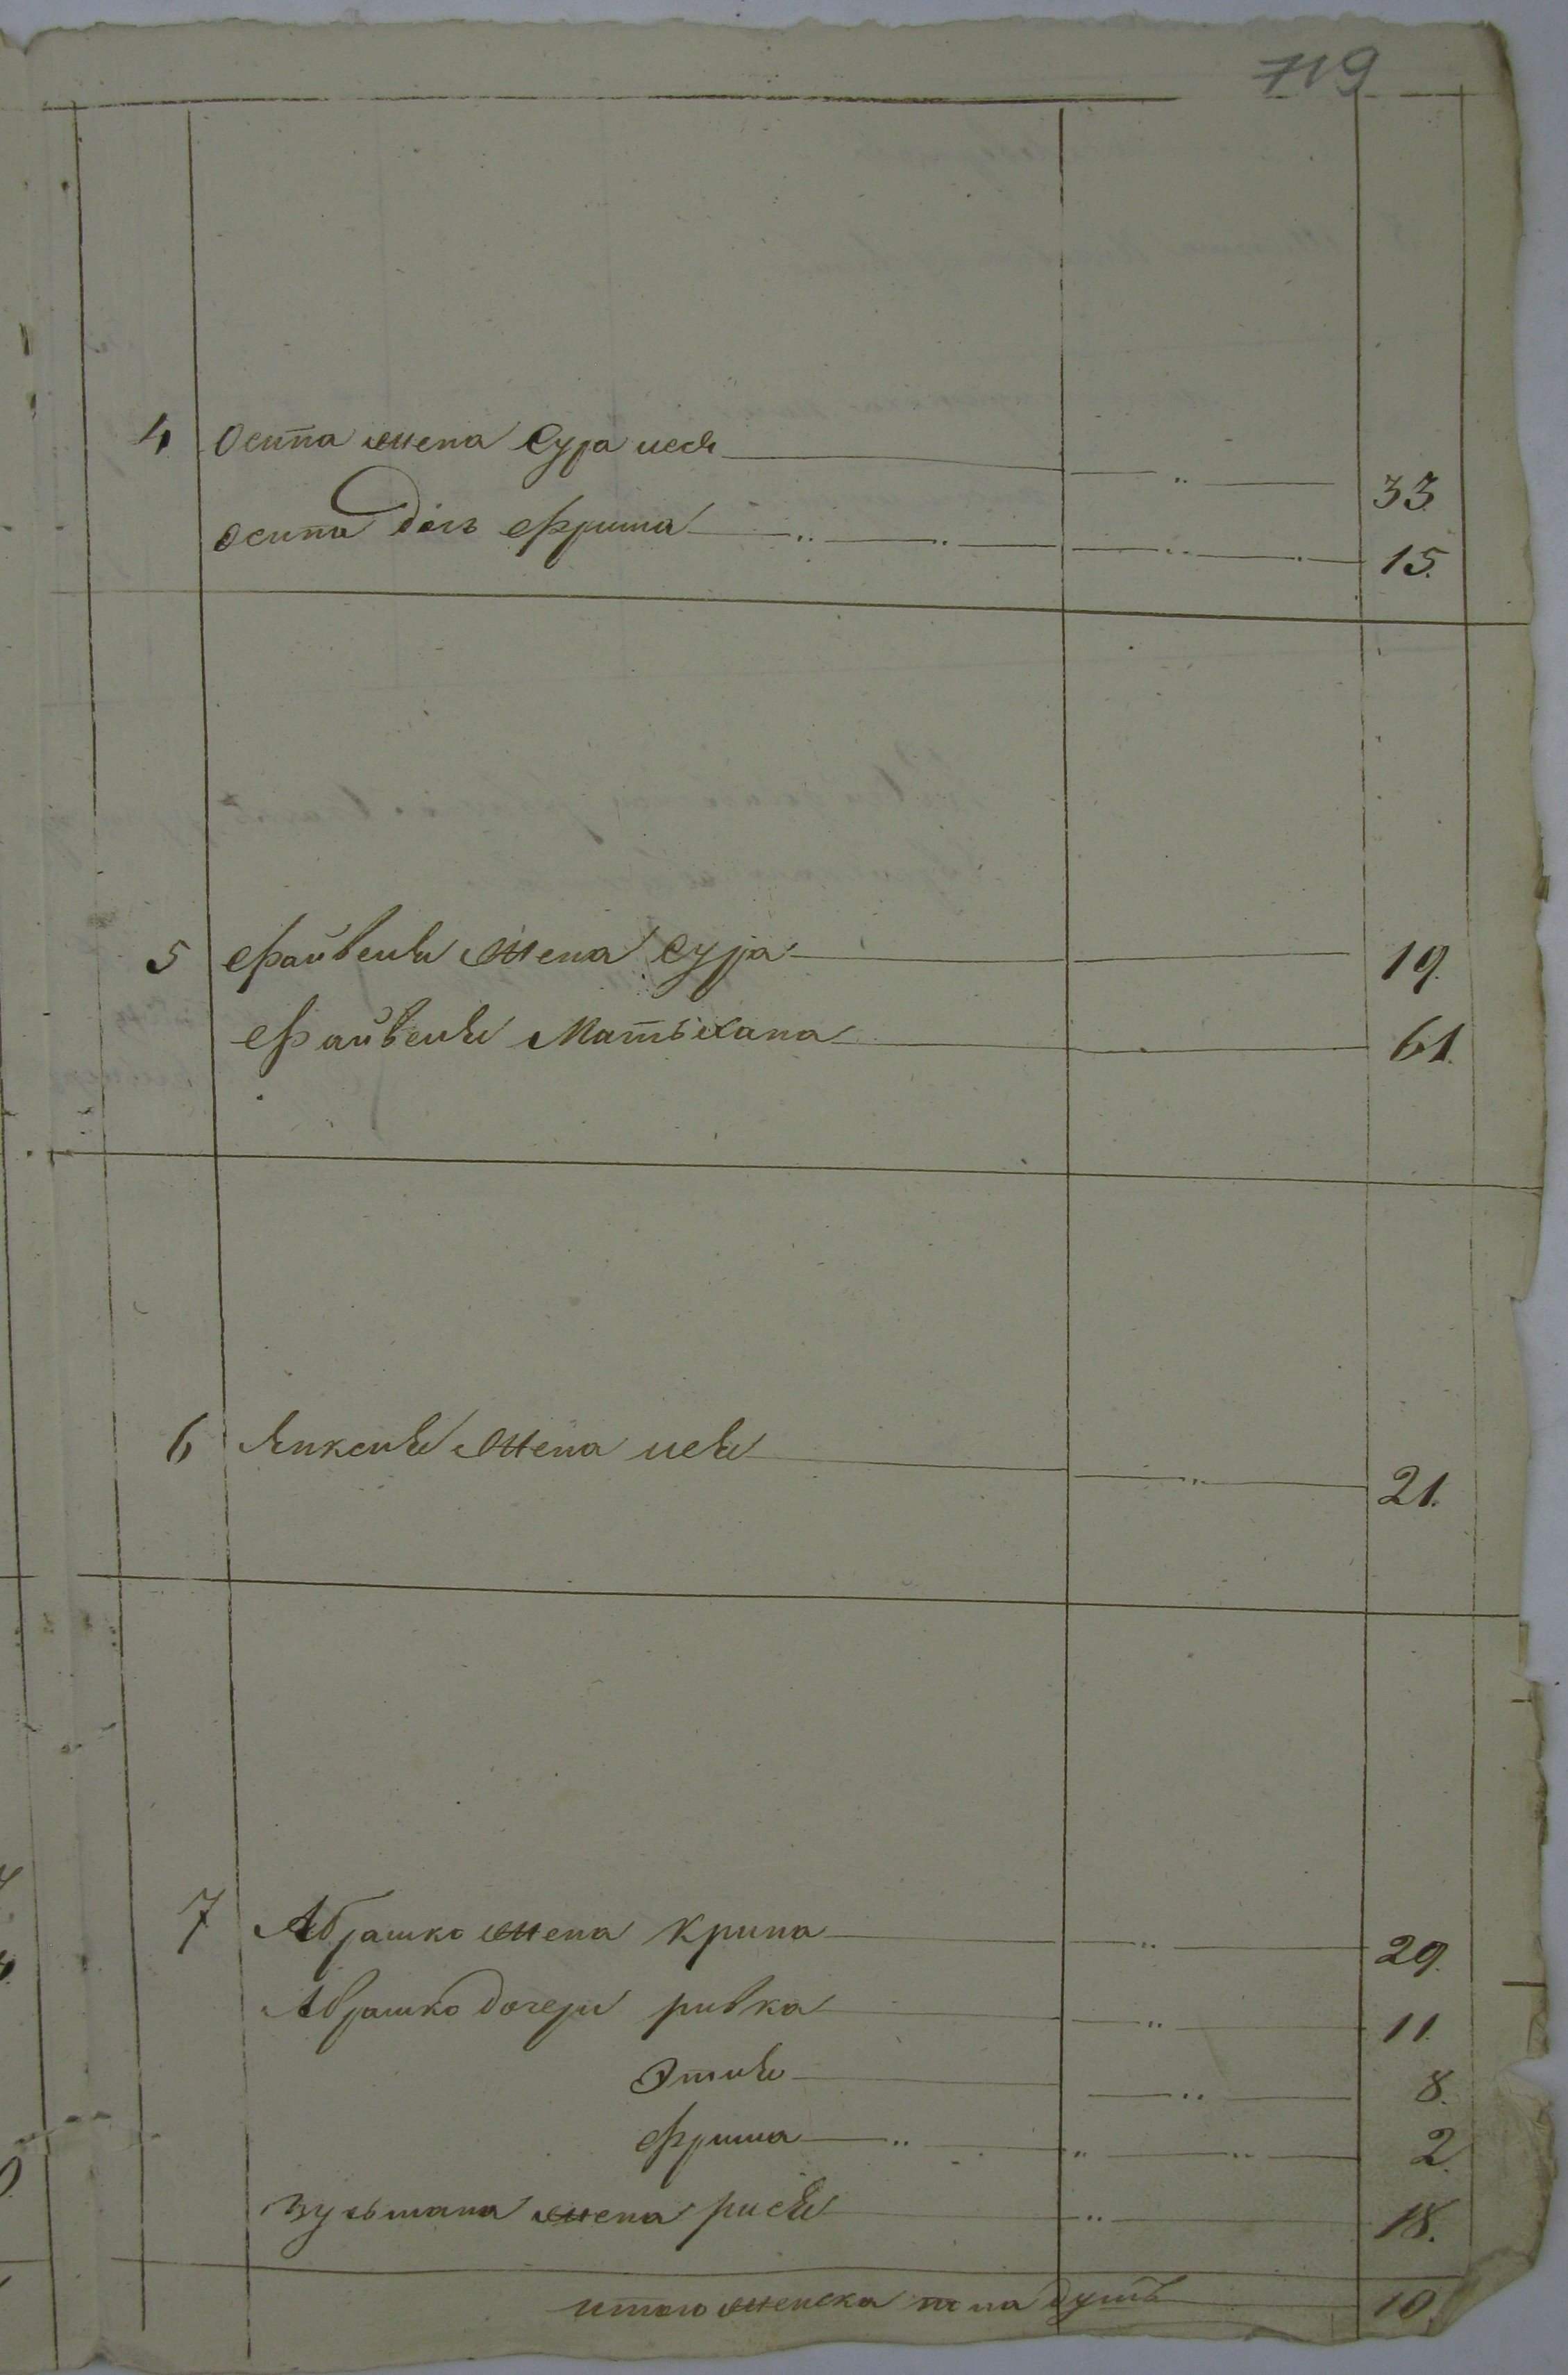 719
4 Осипа жена Сура лея 33
осипа дочь Фрума 15.
5 Файвеля жена Сура 19.
Файвеля Мать хана 61.
6 Янкеля жена лея 21.
7 Абрашко жена Крина 29.
Абрашко дочери ривка 11.
Этля 8.
Фрума 2.
зусьмана жена рися 18.
итого женска пола душъ 10.